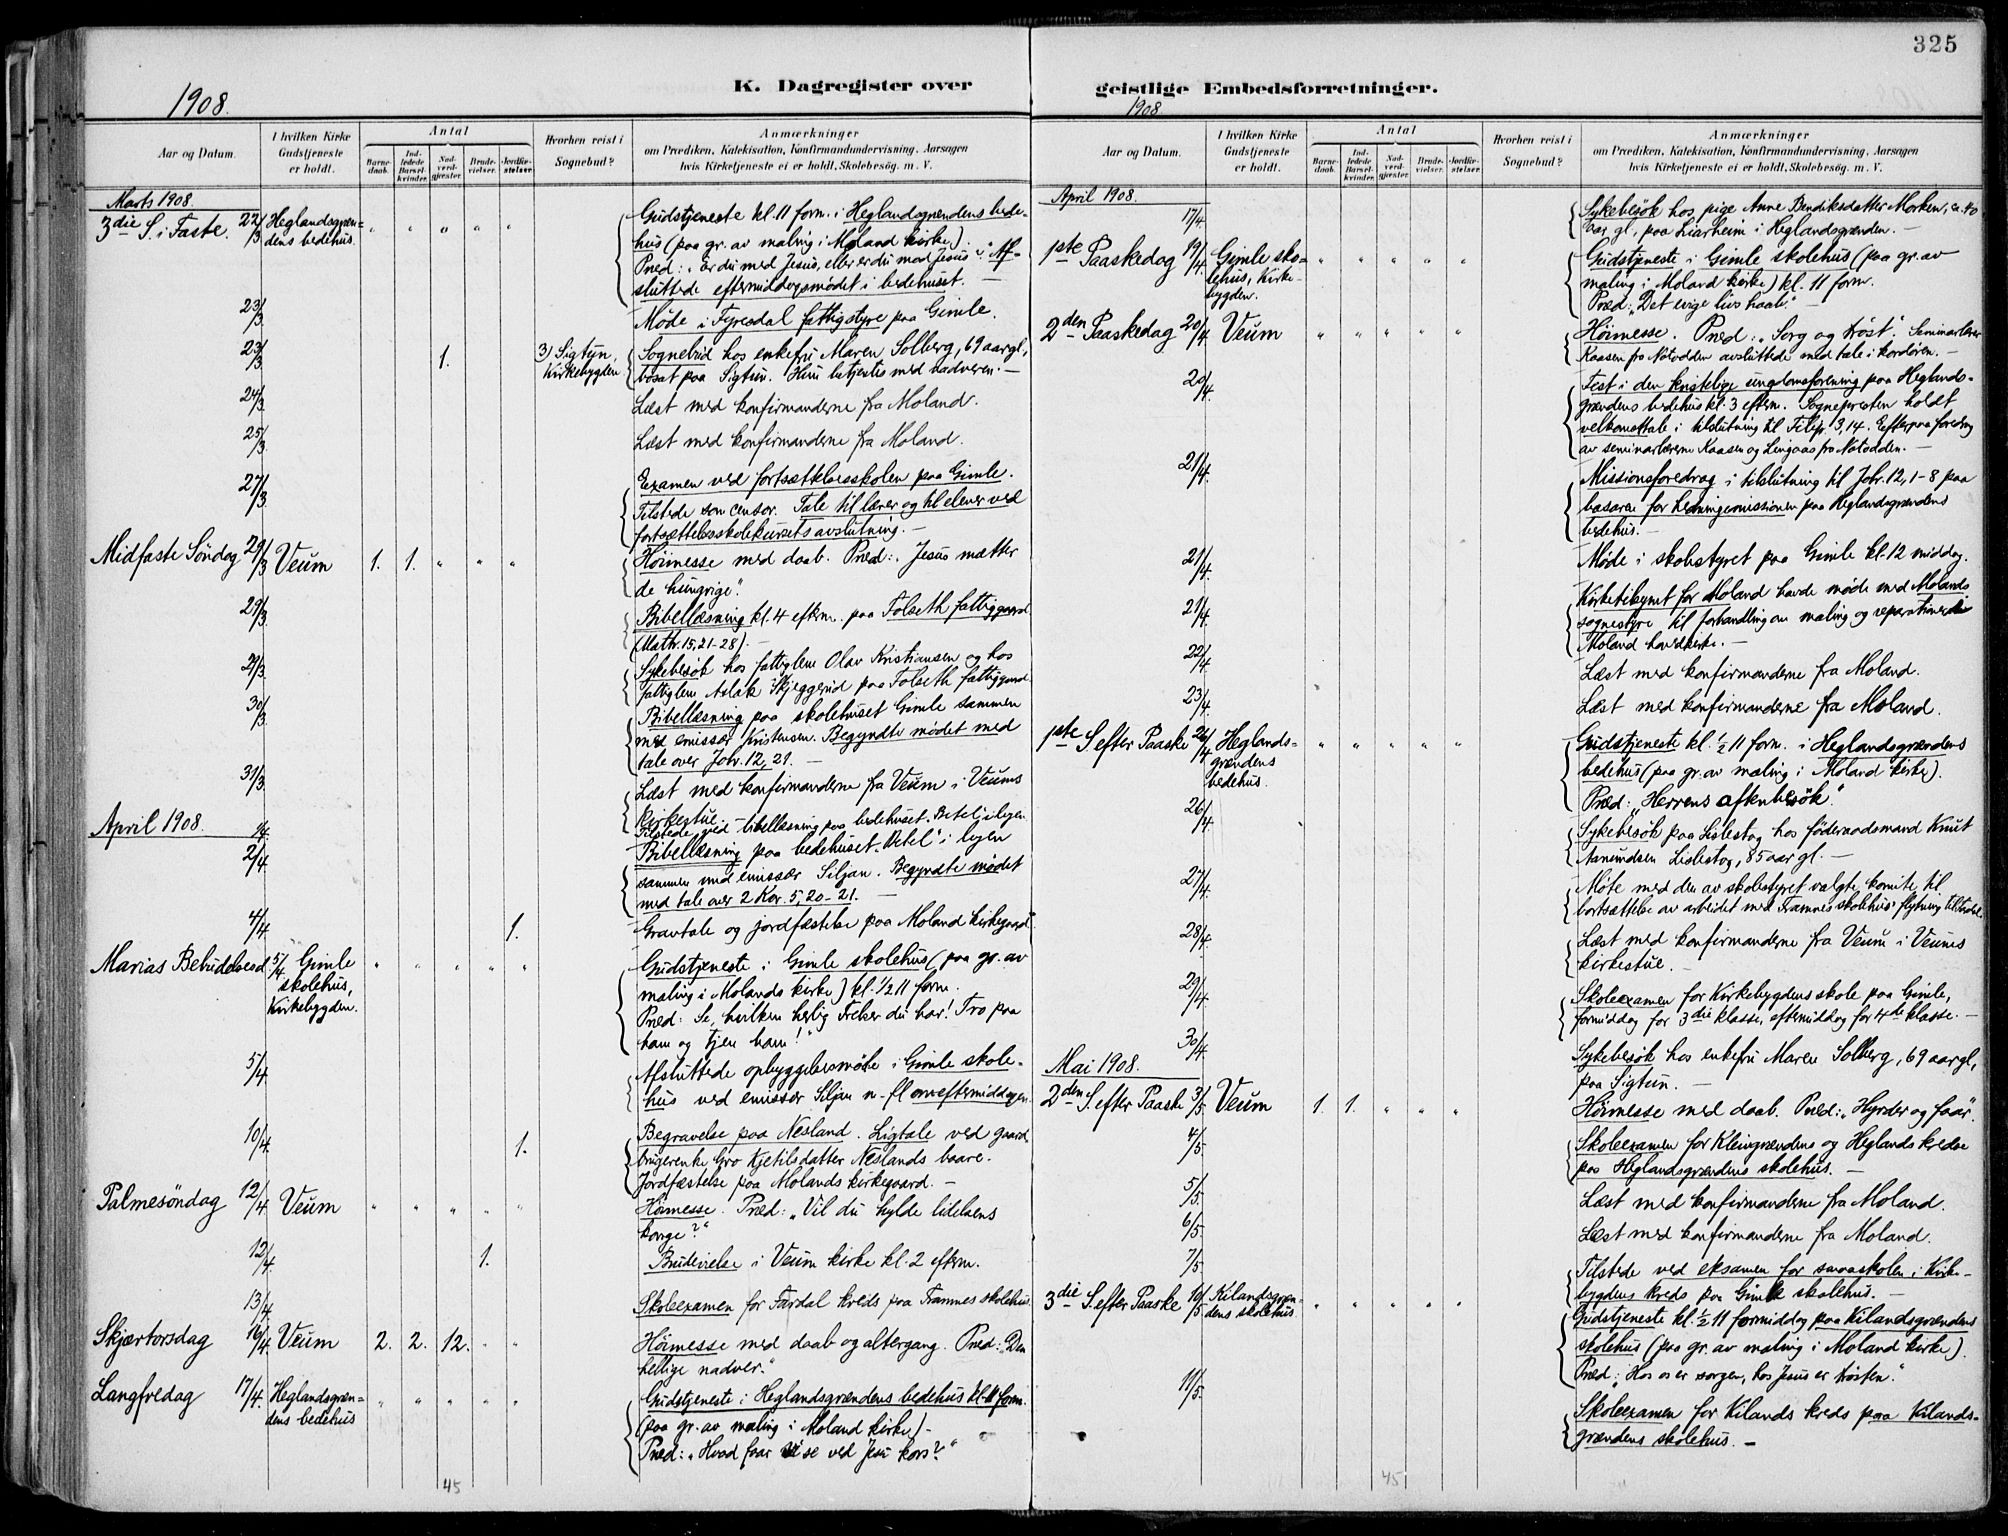 325
K. Dagregister over
geistlige Embedsforretninger.
1908.
Aar og Datum.
I hvilken Kirke
Gudstjeneste
er holdt.
Antal
Barne-
daab.
Ind-
ledede
Barsel-
kvinder.
Nad-
verd-
gjæster.
Brude-
vielser.
Jordfæ-
stelser.
Hvorhen reist i
Sognebud?
Anmærkninger
om Prædiken, Katekisation, Konfirmandundervisning, Aarsagen
hvis Kirketjeneste ei er holdt, Skolebesøg. m. V.
Marts 1908.
3die S. i Faste. 22/3 Heglandsgræn= " " " " " Gudstjeneste kl. 11 form. i Heglandsgrændens bede-
dens bedehus. hus (paa gr. av maling i Moland kirke).
Præd: "Er du med Jesus, eller er du mod Jesus?" Af-
sluttede eftermiddagsmødet i bedehuset. —
23/3 Møde i Fyresdal fattigstyre paa Gimle.
23/3 1. 3) Sigtyn, Sognebud hos enkefru Maren Solberg, 69 aar gl.,
Kirkebygden bosat paa Sigtun. Hun betjentes med nadveren. —
24/3 Læst med konfirmanderne fra Moland.
25/3 Læst med konfirmanderne fra Moland.
27/3 Examen ved fortsættelsesskolen paa Gimle.
Tilstede som censor. Tale til lærer og til elever ved
fortsættelsesskolekursets avslutning. —
Midfaste Søndag 29/3 Veum 1. 1. " " " Høimesse med daab. Præd: "Jesus mætter
de hungrige".
29/3 Bibellæsning kl. 4 efterm. paa Folseth fattiggaard
(Matth. 15, 21-28). —
29/3 Sykebesøk hos fattiglem Olav Kristiansen og hos
fattiglem Aslak Skjeggerud paa Folseth fattiggaard
30/3 Bibellæsning paa skolehuset Gimle sammen
med emissær Kristensen. Begyndte mødet med
tale over Joh. 12, 21. —
31/3 Læst med konfirmanderne fra Veum i Veums
kirkestue. —
April 1908. 1/4 Tilstede ved bibellæsning paa bedehuset "Betel" i legen
2/4 Bibellæsning paa bedehuset "Betel" i legen
sammen med emissær Siljan. Begyndte mødet
med tale over 2 Kor. 5, 20-21. —
4/4 1. Gravtale og jordfæstelse paa Moland kirkegaard
Marias Bebudelsesd. 5/4 Gimle " " " " " Gudstjeneste i Gimle skolehus (paa gr. av
skolehus, maling i Molands kirke) kl. 1/2 11 form.
Kirkebygden. Præd: "Se, hvilken herlig Frelser du har! Tro paa
ham og tjen ham!"
5/4 Afsluttede opbyggelsesmøte i Gimle skole-
hus ved emissær Siljan m. fl. om eftermiddagen.
10/4 1. Begravelse paa Nesland. Ligtale ved gaard-
brugerenke Gro Kjetilsdatter Neslands baare.
Jordfæstelse paa Molands kirkegaard. —
Palmesøndag 12/4 Veum " " " " " Høimesse. Præd: "Vil du hylde lidelsens
konge?"
12/4 1. Brudevielse i Veum kirke kl. 2 efterm.
13/4 Skoleexamen for Fardal kreds paa Framnes skolehus.
Skjærtorsdag 16/4 Veum 2. 2. 12. " " Høimesse med daab og altergang. Præd: "Den
hellige nadver."
Langfredag 17/4. Heglandsgræn= " " " " " Gudstjeneste i Heglandsgrændens bedehus kl. 11 form.
dens bedehus (paa gr. av maling i Moland kirke) —
Præd: "Hvad faar vi se ved Jesu kors?"
45
1908
Aar og Datum.
I hvilken Kirke
Gudstjeneste
er holdt.
Antal
Barne-
daab.
Ind-
ledede
Barsel-
kvinder.
Nad-
verd-
gjæster.
Brude-
vielser.
Jordfæ-
stelser.
Hvorhen reist i
Sognebud?
Anmærkninger
om Prædiken, Katekisation, Konfirmandundervisning, Aarsagen
hvis Kirketjeneste ei er holdt, Skolebesög. m. V.
April 1908.
17/4. Sykebesøk hos pige Anne Bendiksdatter Morken, ca. 40
aar gl., paa Liarheim i Heglandsgrænden. —
1ste Paaskedag 19/4. Gimle sko= " " " " " Gudstjeneste i Gimle skolehus (paa gr. av
lehus, Kirke- maling i Moland kirke) kl. 11 form.
bygden. Præd: "Det evige livs haab." —
2den Paaskedag 20/4. Veum " " " " " Høimesse. Præd: "Sorg og trøst". Seminarlærer
Kaasen fra Notodden avsluttede med tale i kordøren. —
20/4. Fest i den kristelige ungdomsforening paa Heglands=
grændens bedehus kl. 3 efterm. Sognepresten holdt
velkomsttale i tilslutning til Filip. 3, 14. Efterpaa foredrag
av seminarlærerne Kaasen og Lingaas fra Notodden. —
21/4. Missionsforedrag i tilslutning til Joh. 12, 1-8 paa
basaren for hedningemissionen paa Heglandsgrændens
bedehus. —
21/4. Møde i skolestyret paa Gimle kl. 12 middag.
21/4. Kirketilsynet for Moland havde møde med Molands
sognestyre til forhandling om maling og reparation av
Moland hovedkirke. —
22/4 Læst med konfirmanderne fra Moland.
23/4. Læst med konfirmanderne fra Moland.
1ste S. efter Paaske 26/4 Heglands= " " " " " Gudstjeneste kl. 1/2 11 form. i Heglandsgrændens
grændens bedehus (paa gr. av maling i Moland kirke).
bedehus. Præd: "Herrens aftenbesøk".
26/4. Sykebesøk paa Lislestog hos føderaadsmand Knut
Aanundsen Lislestog, 85 aar gl. —
27/4. Møte med den av skolestyret valgte komite til
fortsættelse av arbeidet med Framnes skolehus' flytning
28/4. Læst med konfirmanderne fra Veum i Veums
kirkestue. —
29/4. Skoleexamen for Kirkebygdens skole paa Gimle,
formiddag for 3die klasse, eftermiddag for 4de klasse. —
30/4. Sykebesøk hos enkefru Maren Solberg, 69 aar gl.,
paa Sigtun. —
Mai 1908.
2den S. efter Paaske 3/5 Veum 1. 1. " " " Høimesse med daab. Præd: "Hyrder og faar".
4/5. Skoleexamen for Kleivgrændens og Heglands kredse
paa Heglandsgrændens skolehus. —
5/5. Læst med konfirmanderne fra Moland.
6/5. Læst med konfirmanderne fra Moland.
7/5. Tilstede ved eksamen for smaaskolen i Kirke-
bygdens kreds paa Gimle skolehus. —
3die S. efter Paaske 10/5 Kilandsgræn= " " " " " Gudstjeneste kl. 1/2 11 formiddag paa Kilandsgrændens
dens skolehus. skolehus (paa gr. av maling i Moland kirke).
Præd: "Hos os er sorgen, hos Jesus er trøsten".
11/5. Skoleexamen for Kilands kreds paa Kilands=
grændens skolehus. —
45